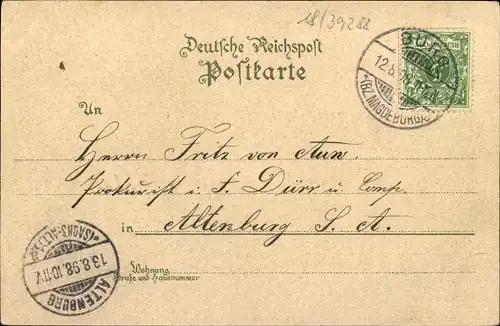 18/39288
Deutsche Reichspost
Postkarte
BURG
12.8.98
*(BZ. MAGDEBURG)
An
Herrn Fritz von Aun,
Prokurist i. F. Dürr u. Comp.
in Altenburg S. A.
Wohnung
(Straße und Hausnummer)
*(SACHS.-ALT.)*
13.8.98.10-11V.
ALTENBURG